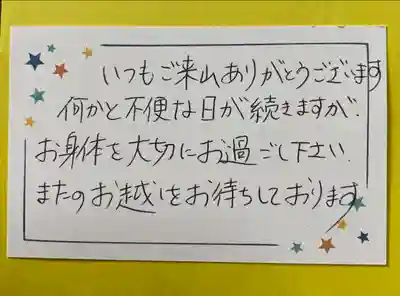 いつもご来山ありがとうございます
何かと不便な日が続きますが、
お身体を大切にお過ごし下さい.
またのお越しをお待ちしております